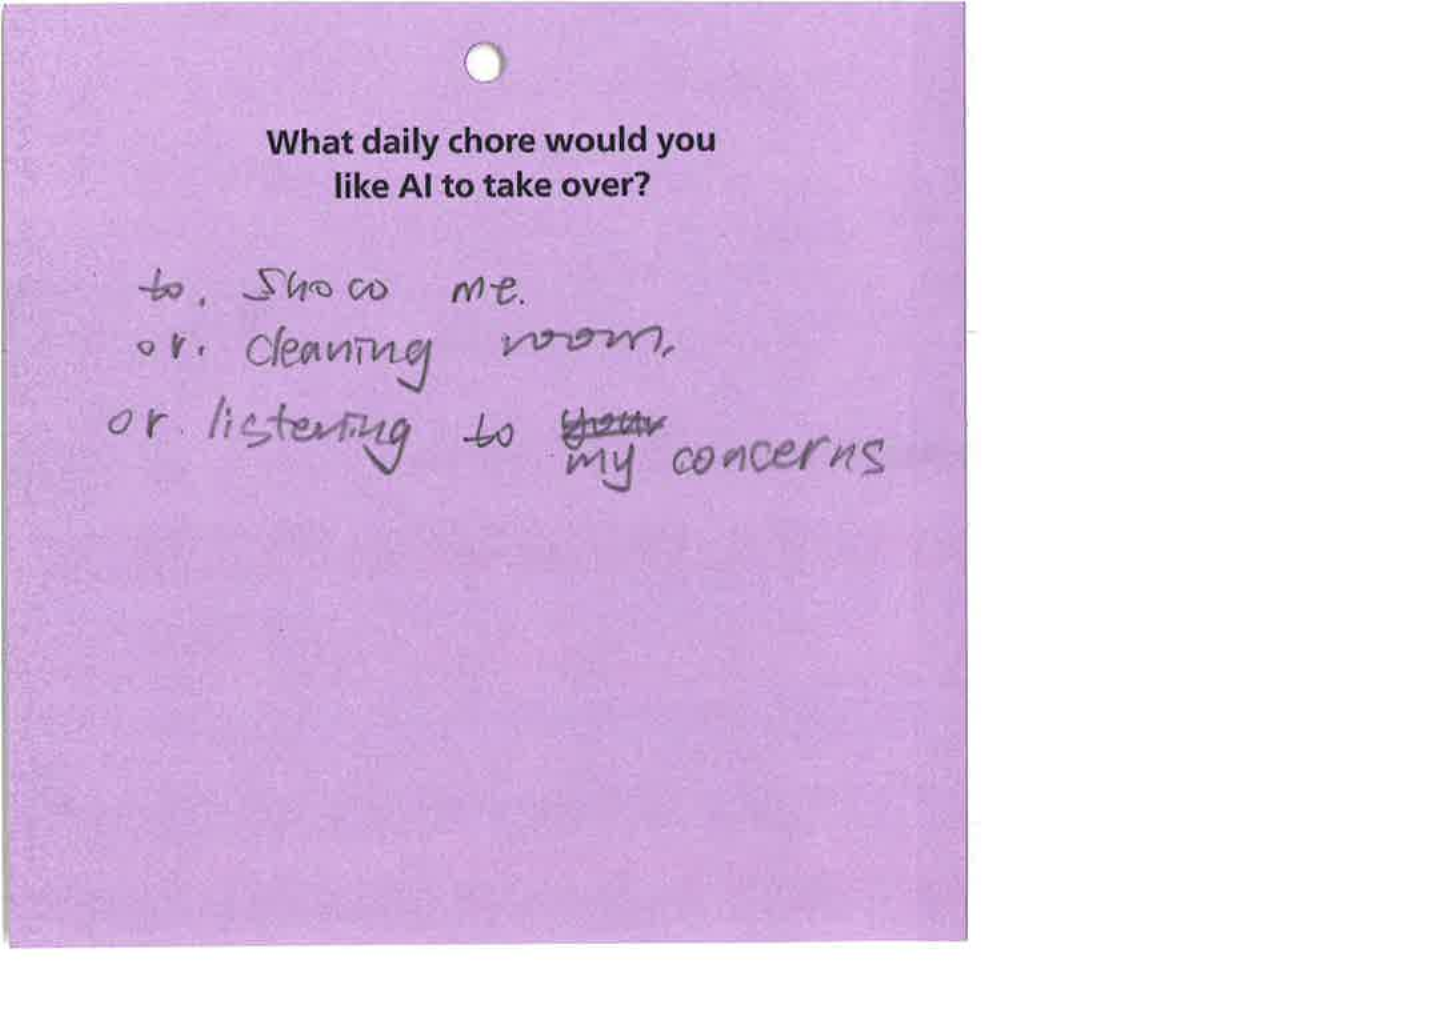 What daily chore would you
like AI to take over?
to. Shoco me.
or. cleaning room,
or. listening to your
my concerns